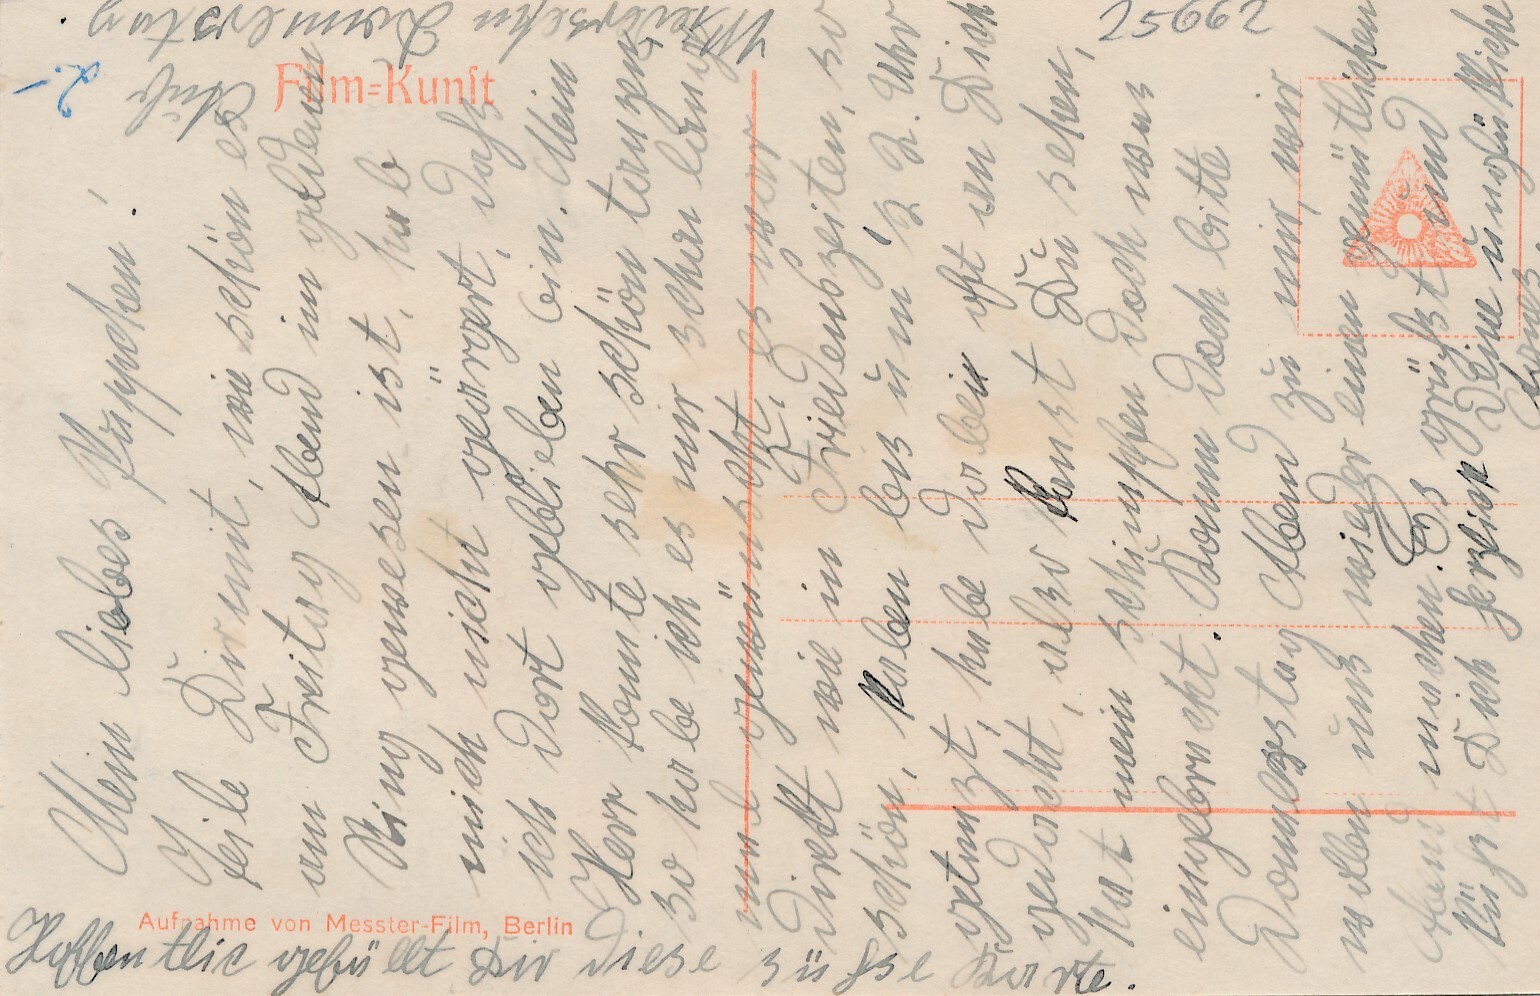 Mein liebes Puppchen!
Teile Dir mit, wie schön es
am Freitag Abend im goldenen
Ring gewesen ist, hab
mich nicht geärgert, dass
ich dort geblieben bin. Mein
Herr konnte sehr schön tanzen
so habe ich es mir schon lange
mal gewünscht. Es war
direkt wie in Friedenszeiten, so
schön, haben bis um 2 Uhr
getanzt, habe dabei oft an Dich
gedacht, also kanst Du sehen,
hat mein schimpfen doch was
eingebracht. Komm doch bitte
Donnerstag Abend zu mir, wir
wollen uns wieder einen gemütlichen
Abend machen. Es grüßt und
küßt Dich herzlich Deine unglükliche
Auf
Wiedersehn Donnerstag.
Hoffentlic gefällt Dir diese süsse Karte.
Film=Kunst
Aufnahme von Messter-Film, Berlin
25662
2.-